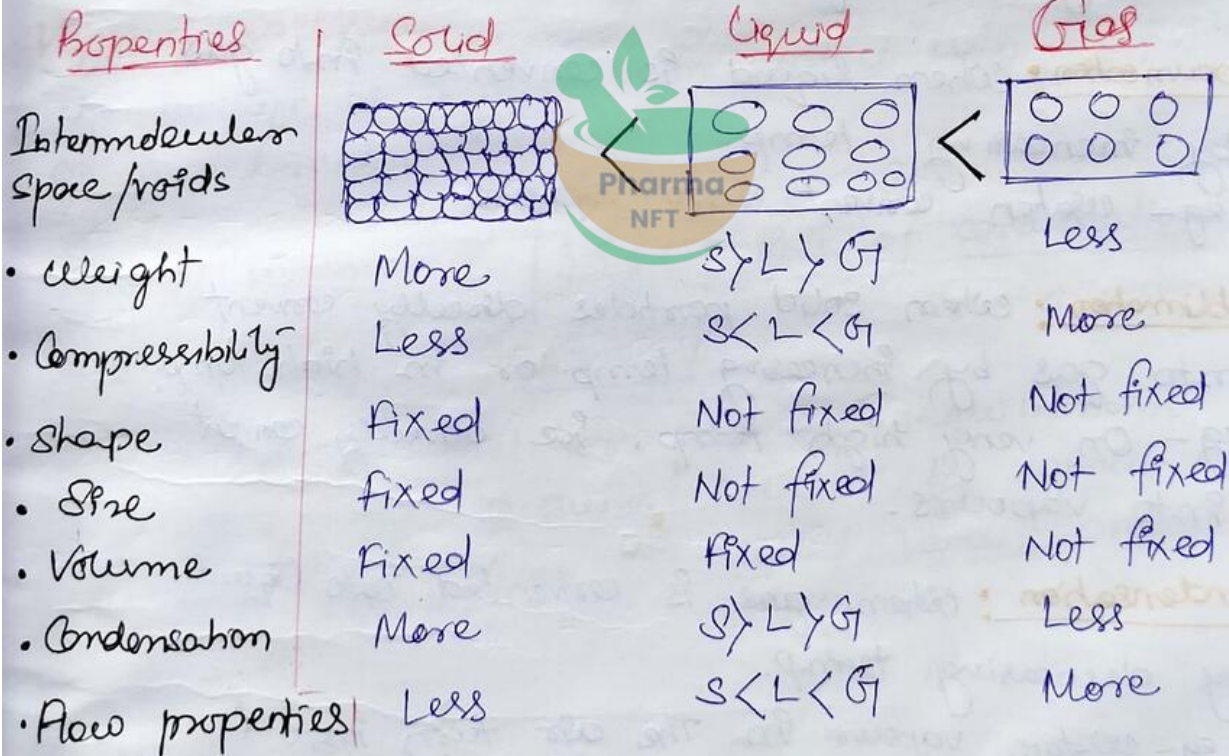 Properties Solid Liquid Gas
Intermolecular < <
space/voids
Pharma
NFT
• Weight More S>L>G Less
• Compressibility Less S<L<G More
• Shape Fixed Not fixed Not fixed
• Size fixed Not fixed Not fixed
• Volume Fixed Fixed Not fixed
• Condensation More S>L>G Less
• Flow properties Less S<L<G More